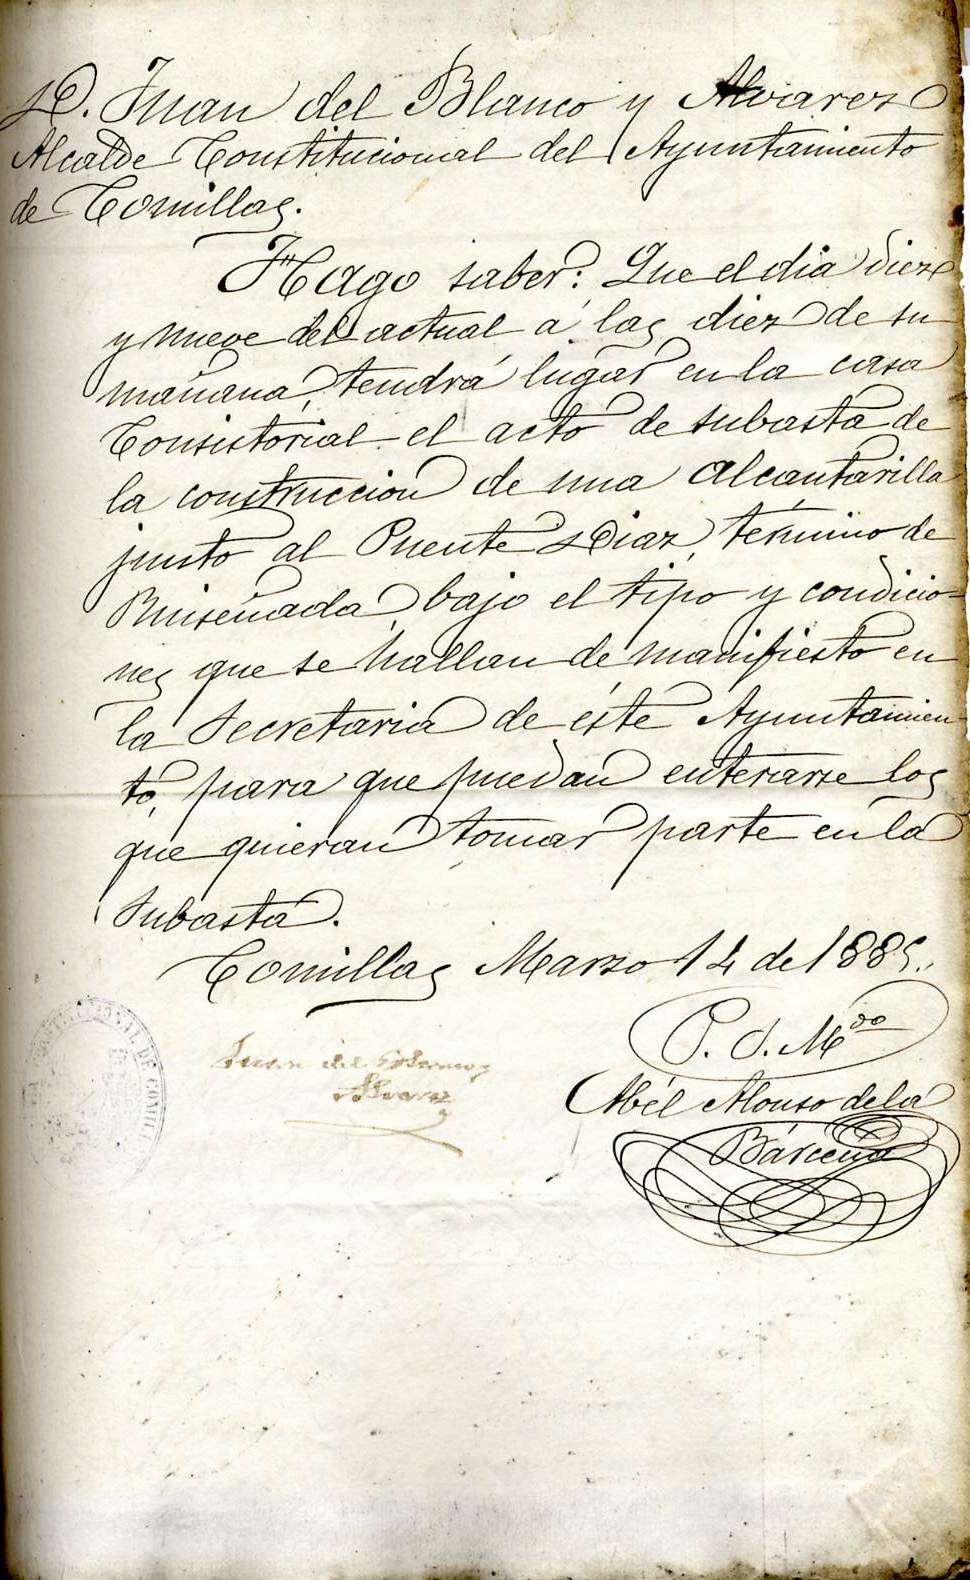 D. Juan del Blanco y Alvarez
Alcalde Constitucional del Ayuntamiento
de Comillas.
Hago saber: Que el dia diez
y nueve del actual á las diez de su
mañana, tendrá lugar en la casa
Consistorial el acto de subasta de
la construccion de una alcantarilla
junto al Puente Diaz, término de
Ruiseñada, bajo el tipo y condicio-
nes que se hallan de manifiesto en
la Secretaria de éste Ayuntamien-
to, para que puedan enterarse los
que quieran tomar parte en la
subasta.
Comillas Marzo 14 de 1885.
P. S. Mdo
Juan del Blanco
Alvarez
Abél Alonso de la
Bárcena
CONSTITUCIONAL DE COMILL